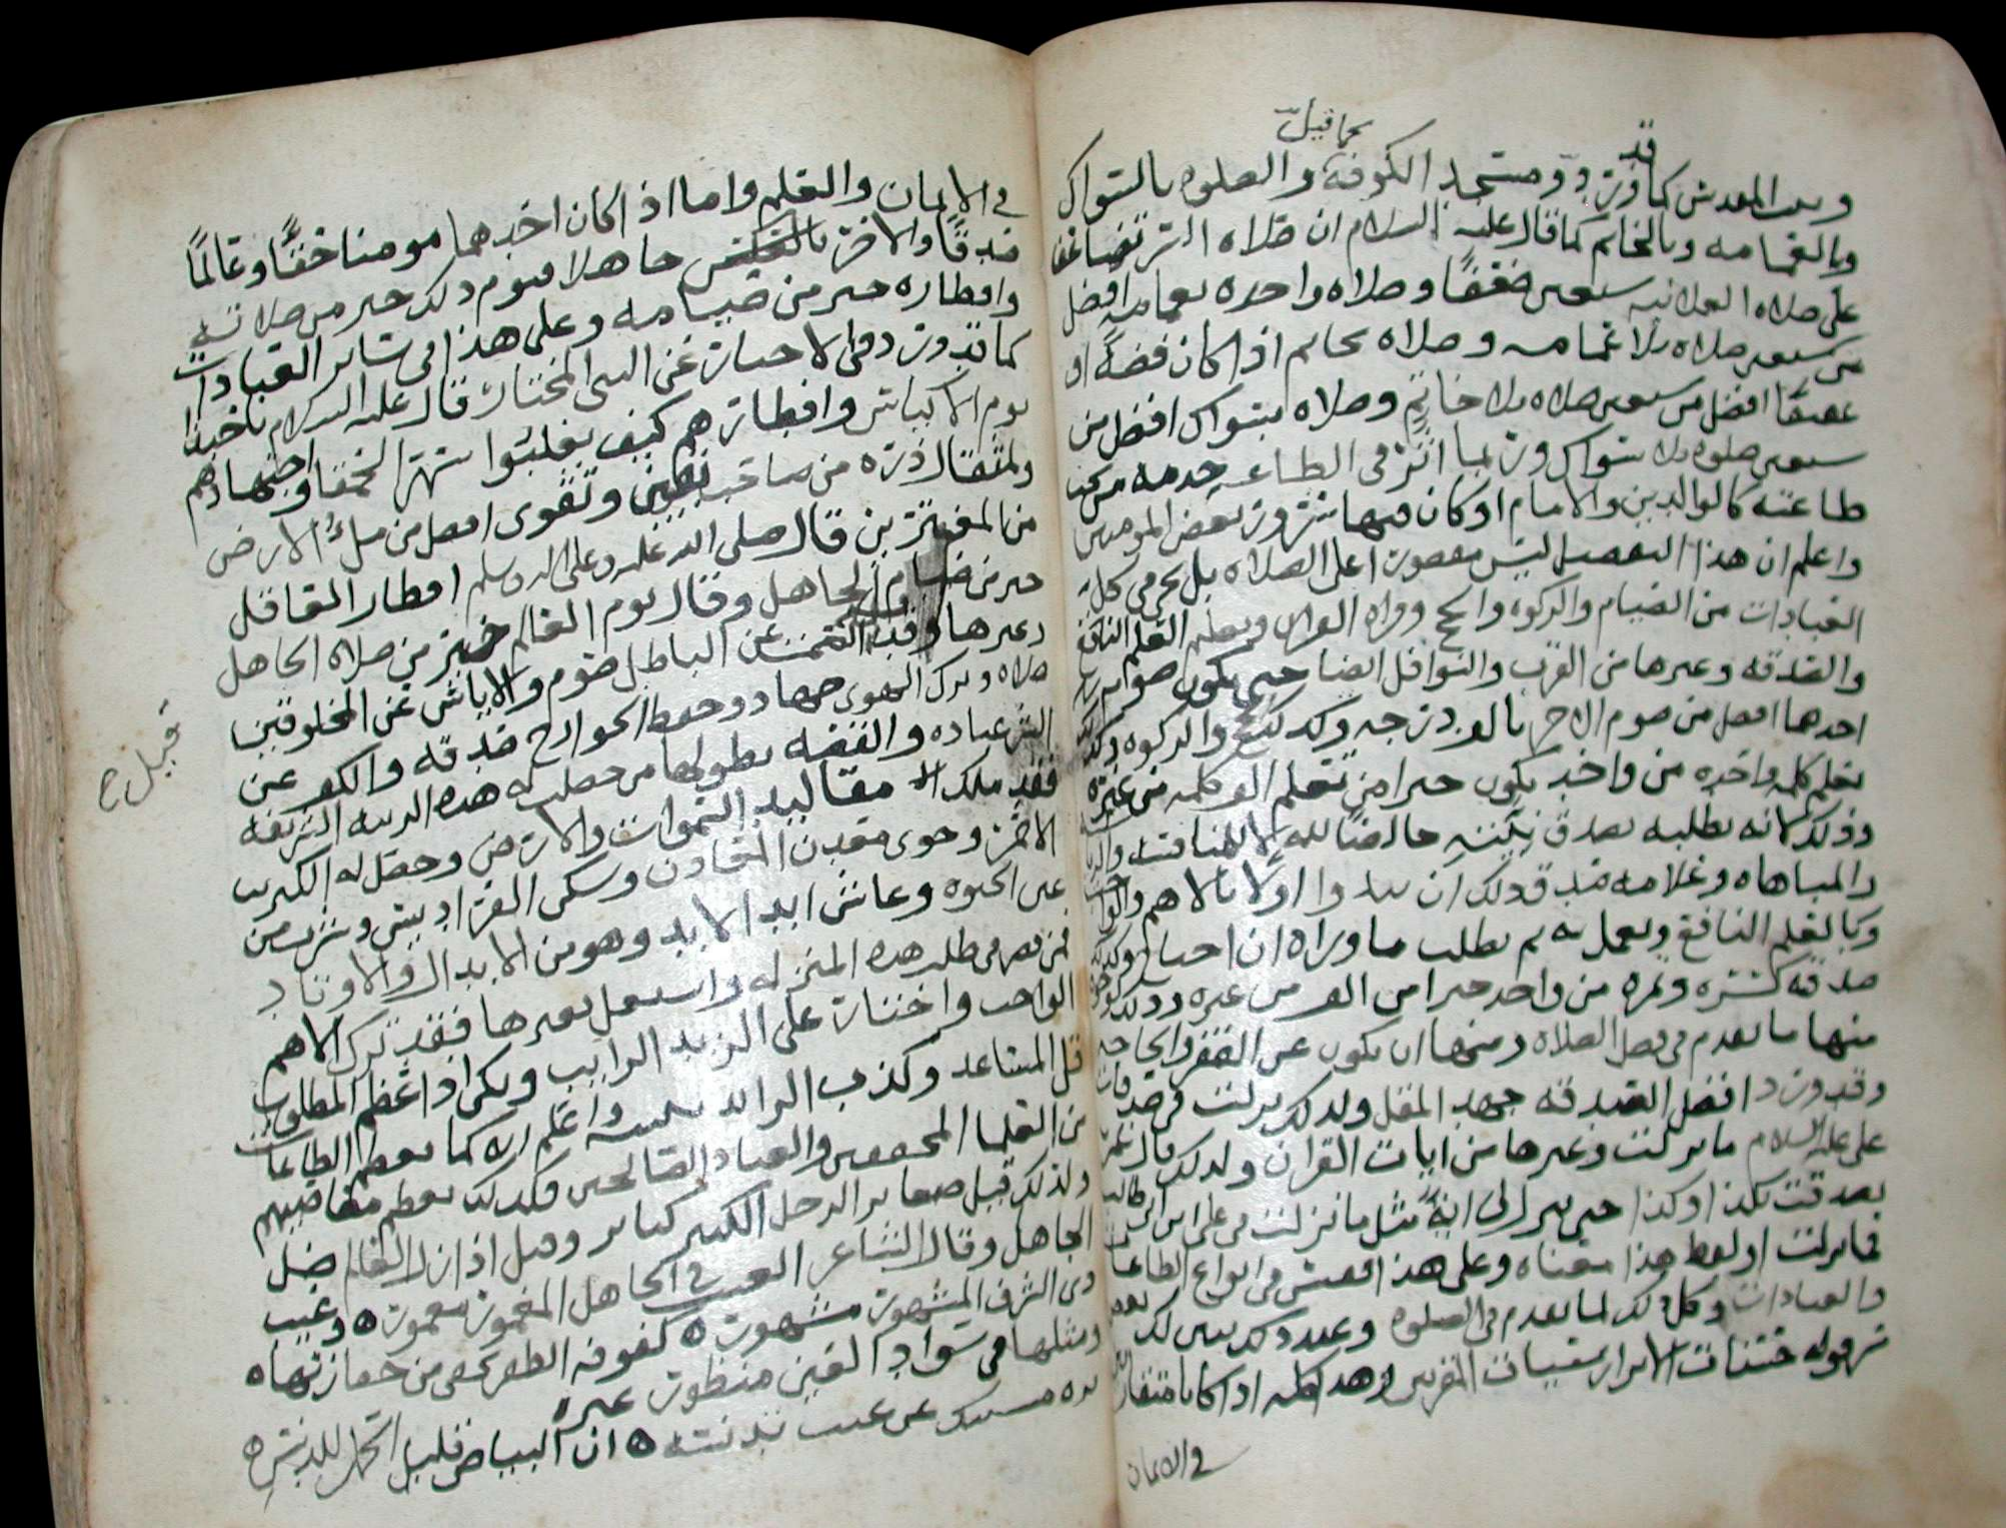 كما قيل
قد
وبيت المقدس كما ورد ومسجد الكوفة والصلوه بالسواك
وبالعمامه وبالخاتم كما قال عليه السلام ان صلاه السر تضاعف
على صلاه العلانيه سبعين ضعفًا وصلاه واحده بعمامه افضل
من سبعين صلاه بلا عمامه وصلاه بخاتم اذا كان فضةً او
عقيقًا افضل من سبعين صلاه بلا خاتمٍ وصلاه بسواك افضل من
سبعين صلوه بلا سواك وربما اثر في الطاعه خدمه من تجب
طاعته كالوالدين والامام او كان فيها سرور بعض المومنين
واعلم ان هذا التفضيل ليس مقصورا على الصلاه بل يجري في كل
العبادات من الصيام والزكوه والحج وقراه القران وتعليم العلم النافع
والصدقه وغيرها من القرب والنوافل ايضا حتى يكون صوم
احدهما افضل من صوم الاخر بالف درجه وكذلك الحج والزكوه وكذلك
تعلم كلمه واحده من واحد يكون خيرا من تعلم الف كلمه من غيره
وذلك لانه يطلبه بصدق نيته خالصًا لله لا للمنافسه
والمباهاه وعلامه صدق ذلك ان يبدوا اولا بالاهم
وبالعلم النافع ويعمل به ثم يطلب ما وراه ان احتاج وكذلك
صدقه كسره وتمره من واحد خيرا من الف من غيره وذلك
منها ما تقدم في فضل الصلاه ومنها ان يكون عن الفقر والحاجه
وقد ورد افضل الصدقه جهد المقل ولذلك نزلت في صدقات
علي عليه السلام ما نزلت وغيرها من ايات القران ولذلك قال عمر
تصدقت بكذا وكذا حتى ينزل في ايةٌ مثل ما نزلت في علي ابن ابي طالب
فما نزلت او لفظ هذا معناه وعلى هذا فقس في انواع الطاعات
والعبادات وكل ذلك لما تقدم في الصلوه وعند ذلك يتبين لك
سر قوله حسنات الابرار سيئات المقربين وهذا كله اذا كانا متقاربين
في الايمان
في الايمان والعلم واما اذا كان احدهما مومنا حقًا وعالمًا
صدقًا والاخر بالعكس جاهلا فنوم ذلك خير من صلاته
وافطاره خير من صيامه وعلى هذا في سائر العبادات
كما قد ورد في الاخبار عن النبي المختار قال عليه السلام يا حبذا
نوم الاكياس وافطارهم كيف يغلبوا سهر الحمقا واجتهادهم
ولمثقال ذره من صاحب يقين وتقوى افضل من ملءُ الارض
من المغترين قال صلى الله عليه وعلى اله وسلم افطار العاقل
خير من صيام الجاهل وقال نوم العالم خير من صلاه الجاهل
وغيرها وقيل الصمت عن الباطل صوم والاياس عن المخلوقين
صلاه وترك الهوى جهاد وحفظ الجوارح صدقه والكف عن
الشر عباده والقصه بطولها من حصلت له هذه الرتبه الشريفه
فقد ملك مقاليد السموات والارض وحصل له الكبريت
الاحمر وحوى معدن المعادن وسكن الفراديس وشرب من
عين الحيوه وعاش ابد الابد وهو من الابدال والاوتاد
فمن قصر في طلب هذه المنزله واشتغل بغيرها فقد ترك الاهم
الواجب واختار على الزبد الرايب وبكى اذا عظم المطلوب
قل المساعد وكذب الرائد واعلم انه كما تعظم الطاعات
من العلما المحققين والعباد الصالحين فكذلك تعظم معاصيهم
ولذلك قيل صغاير الرجل الكبير كباير وقيل اذا زل العالم ضل
الجاهل وقال الشاعر العيب في الجاهل المغمور مغمور ه وعيب
ذي الشرف المشهور مشهور ه كفوفه الظفر تخفى من حقارتها ه
ومثلها في سواد العين منظور غيره
ان البياض قليل الحمل للدنس ه
قيل ح